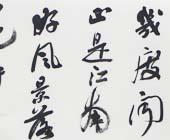 幾度闻
正是江南
好风景落